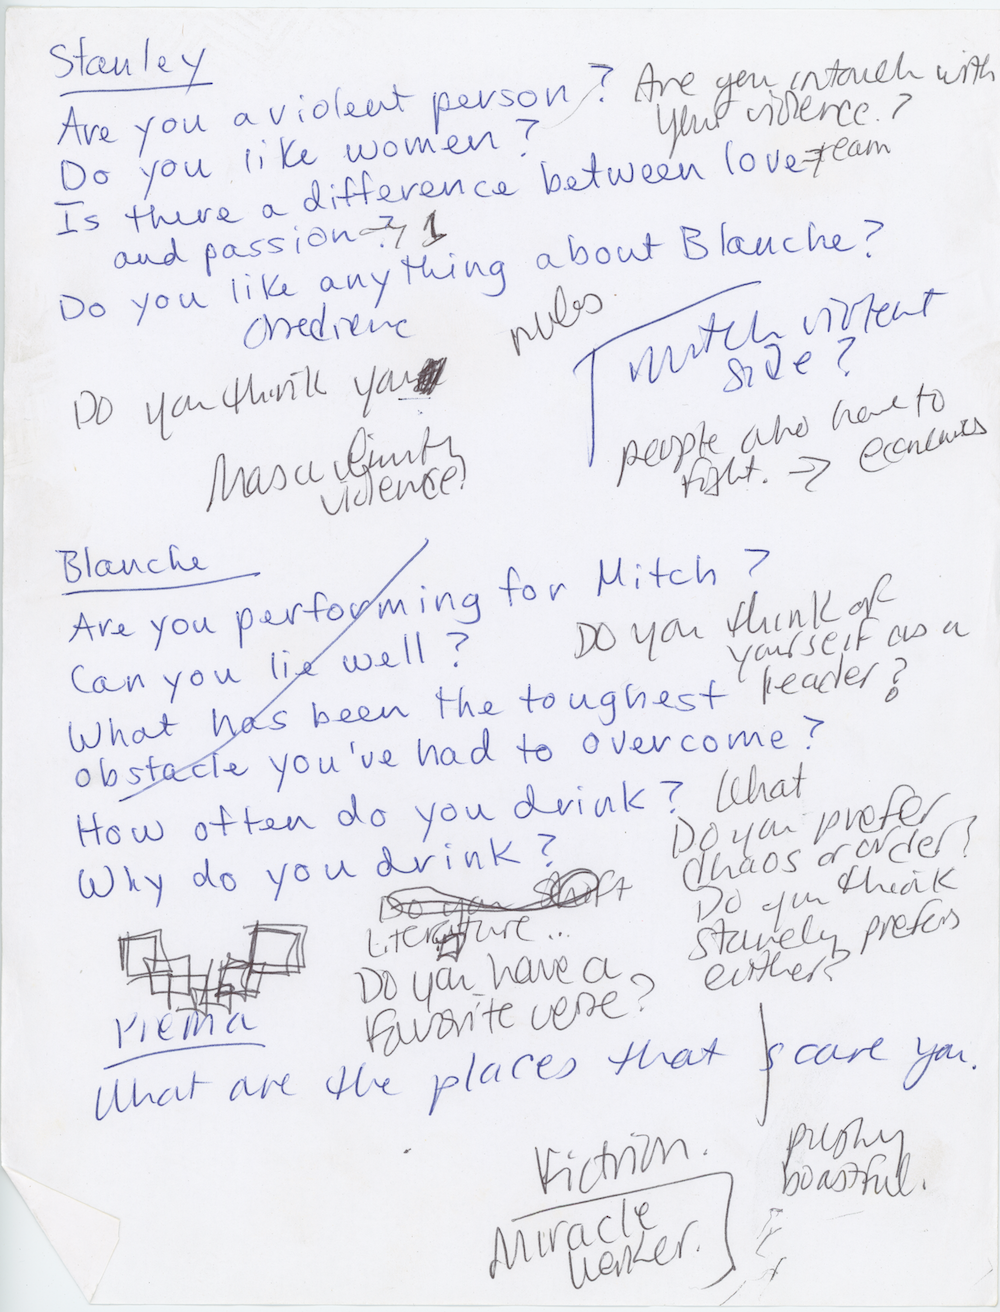 Stanley
Are you a violent person?
Are you in touch with
your violence?
Do you like women?
Is there a difference between love
team
and passion?
1
Do you like anything about Blanche?
obedience
rules
Mitch violent
side?
Do you think you
people who have to
fight. →
Masculinity
violence?
Blanche
Are you performing for Mitch?
Can you lie well?
Do you think of
yourself as a
leader?
What has been the toughest
obstacle you've had to overcome?
How often do you drink?
What
Why do you drink?
Do you prefer
chaos or order?
Do you think
Stanely prefers
either?
Do you
Literature...
Do you have a
favorite verse?
What are the places that scare you.
pushy
boastful.
Miracle